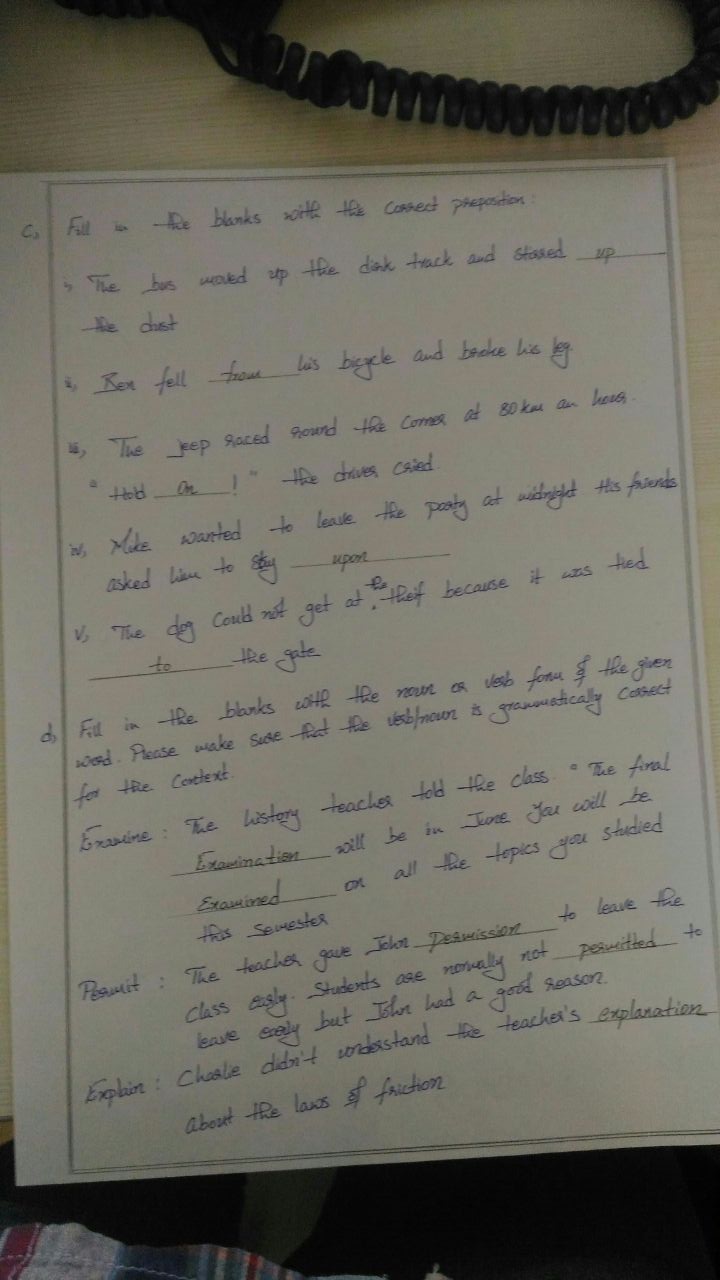 c, Fill in the blanks with the correct preposition:
i, The bus moved up the dirk track and stored up
the dust
ii, Ben fell from his bicycle and broke his leg.
iii, The jeep raced round the corner at 80 km an hour.
"Hold on!" the driver cried.
iv, Mike wanted to leave the party at midnight His friends
asked him to stay upon
v, The dog could not get at the theif because it was tied
to the gate
d, Fill in the blanks with the noun or verb form of the given
word. Please make sure that the verb/noun is grammatically correct
for the context.
Examine: The history teacher told the class. "The final
Examination will be in June You will be
Examined on all the topics you studied
this semester
Permit: The teacher gave John Permission to leave the
class early. Students are normally not permitted to
leave early but John had a good reason.
Explain: Charlie didn't understand the teacher's explanation
about the laws of friction